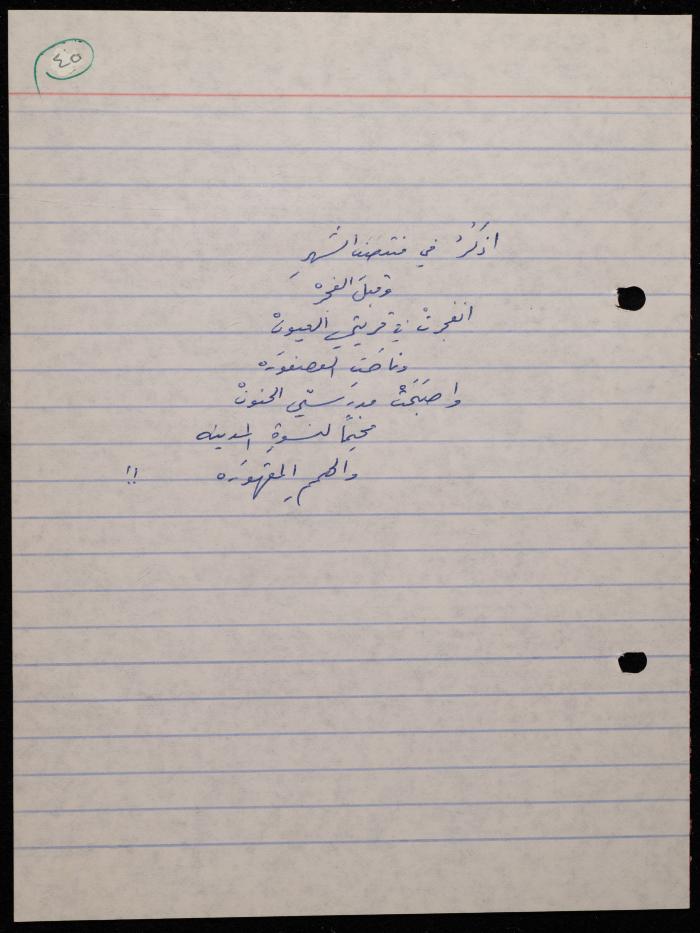 ٤٥
اذكُرُ في منتصف الشَهرِ
وقبلَ الفجرْ
انفجرتْ في قريتي العيونْ
وناحَت العصفورَه
واصبَحَتْ مدرَستي الحنونْ
مخيمًا لنسوةِ المدينه
والهممِ المقهورَه !!